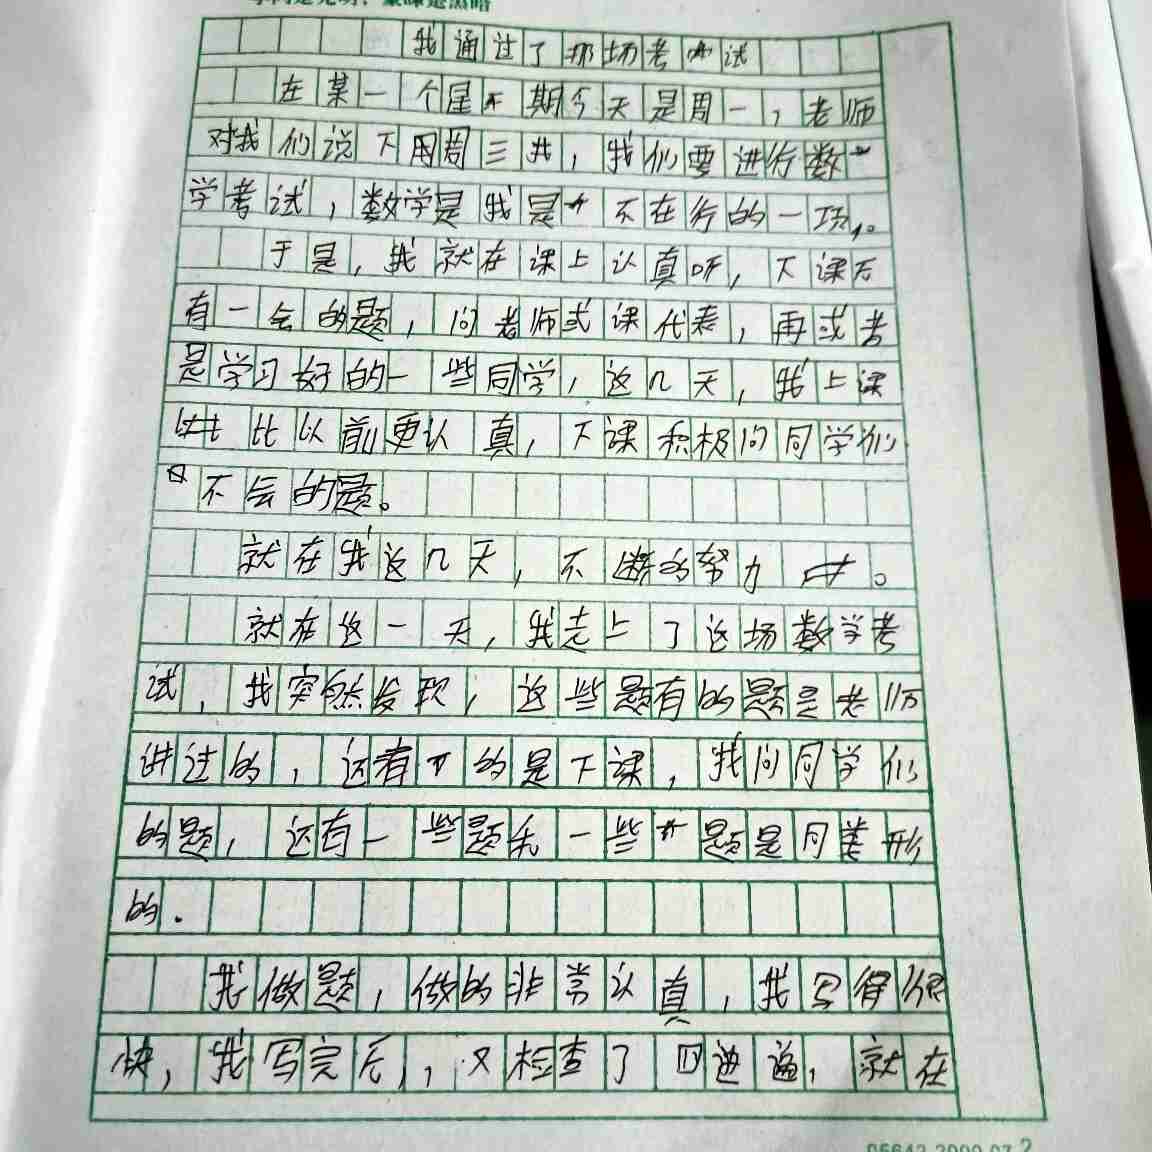 我通过了那场考试
在某一个星期今天是周一，老师
对我们说下周周三我，我们要进行数
学考试，数学是我是不在行的一项。
于是，我就在课上认真听，下课后
有一会的题，问老师或课代表，再或者
是学习好的一些同学，这几天，我上课
比以前更认真，下课积极问同学们
不会的题。
就在我这几天，不断的努力中。
就在这一天，我走上了这场数学考
试，我突然发现，这些题有的题是老师
讲过的，还有的是下课，我问同学们
的题，还有一些题和一些题是同类形
的.
我做题，做的非常认真，我写得很
快，我写完后，又检查了四遍，就在
05642 2000.07 2